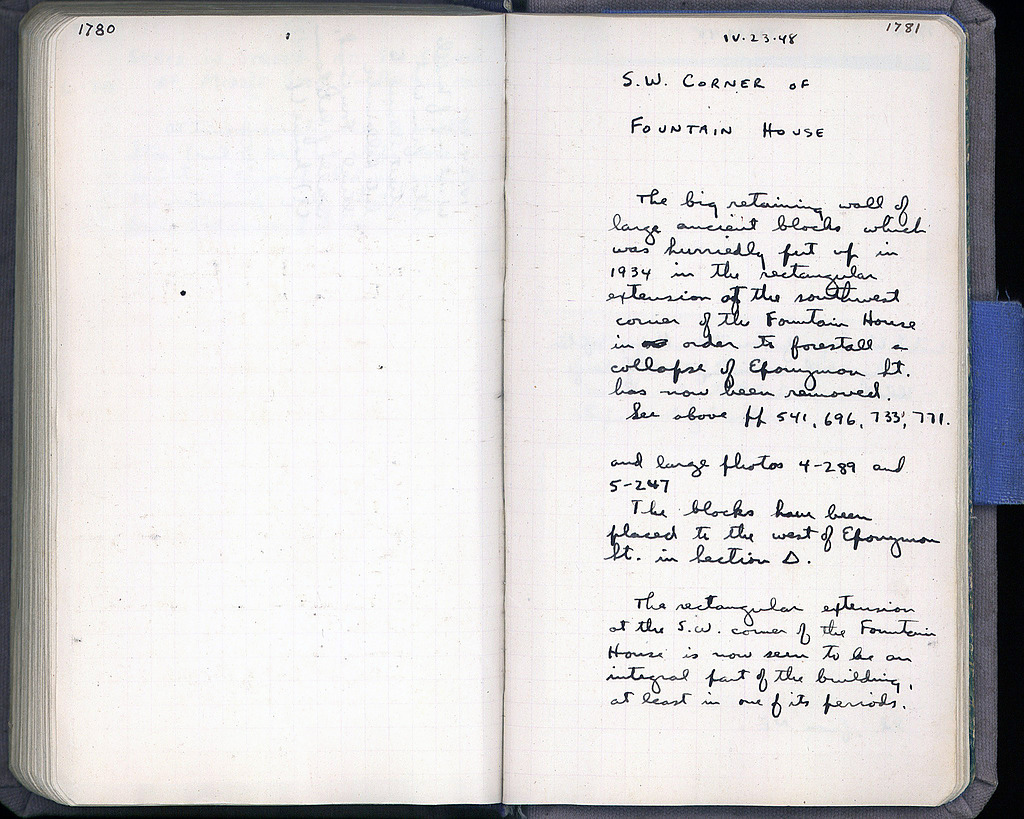 1780
1781
IV.23.48
S.W. CORNER OF
FOUNTAIN HOUSE
The big retaining wall of
large ancient blocks which
was hurriedly put up in
1934 in the rectangular
extension of the southwest
corner of the Fountain House
in order to forestall a
collapse of Eponymon St.
has now been removed.
See above pp 541, 696, 733', 771.
and large photos 4-289 and
5-247
The blocks have been
placed to the west of Eponymon
St. in Section Δ.
The rectangular extension
at the S.W. corner of the Fountain
House is now seen to be an
integral part of the building,
at least in one of its periods.